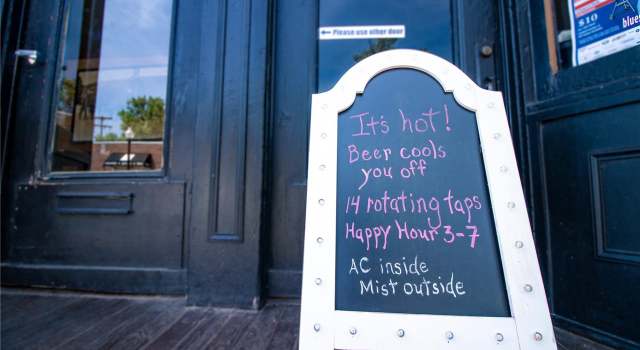 ←Please use other door
$10
blues
It's hot!
Beer cools
you off
14 rotating taps
Happy Hour 3-7
AC inside
Mist outside